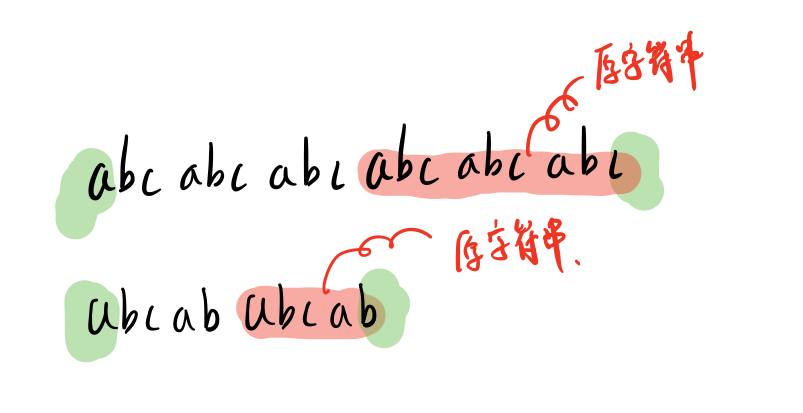 原字符串
abc abc abc abc abc abc
原字符串、
abc ab abc ab